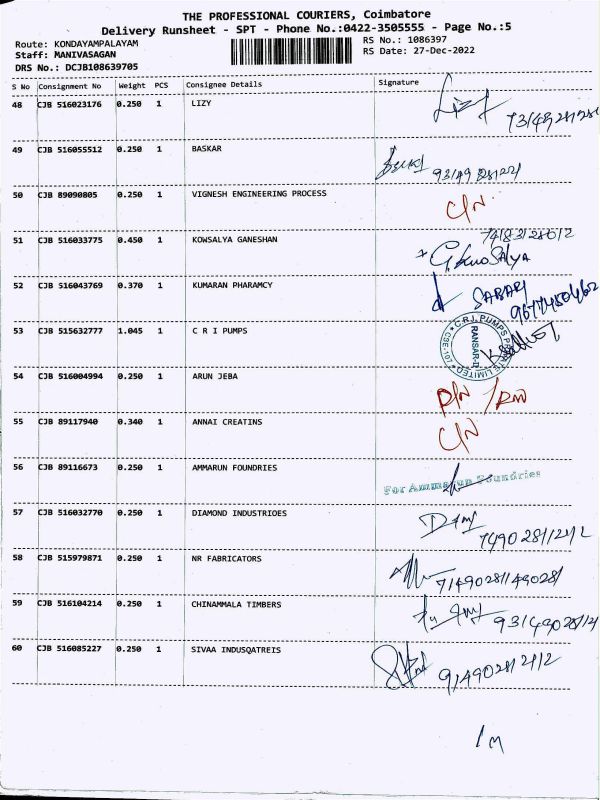 THE PROFESSIONAL COURIERS, Coimbatore
Delivery Runsheet - SPT - Phone No.:0422-3505555 - Page No.:5
Route: KONDAYAMPALAYAM
RS No.: 1086397
Staff: MANIVASAGAN
RS Date: 27-Dec-2022
DRS No.: DCJB108639705
S No Consignment No Weight PCS Consignee Details Signature
48 CJB 516023176 0.250 1 LIZY Lizy
49 CJB 516055512 0.250 1 BASKAR
50 CJB 89090805 0.250 1 VIGNESH ENGINEERING PROCESS C/N
51 CJB 516033775 0.450 1 KOWSALYA GANESHAN
52 CJB 516043769 0.370 1 KUMARAN PHARAMCY SABARI
53 CJB 515632777 1.045 1 C R I PUMPS
54 CJB 516004994 0.250 1 ARUN JEBA
55 CJB 89117940 0.340 1 ANNAI CREATINS C/N
56 CJB 89116673 0.250 1 AMMARUN FOUNDRIES For Ammarun Foundries
57 CJB 516032770 0.250 1 DIAMOND INDUSTRIOES
58 CJB 515979871 0.250 1 NR FABRICATORS
59 CJB 516104214 0.250 1 CHINAMMALA TIMBERS
60 CJB 516085227 0.250 1 SIVAA INDUSQATREIS